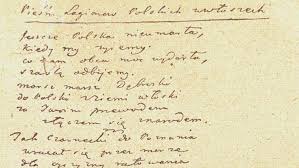 Pieśń Legionow Polskich wewłoszech
Jeszcze Polska nieumarła,
kiedy my żyiemy.
co nam obca moc wydarła,
szablą odbijemy.
marsz marsz Dąbrski
do Polski zziemi włoski
za Twoim przewodem
złączem się znarodem.
Jak Czarnecki do Poznania
wracał się przez morze
dla oyczyzny ratowania